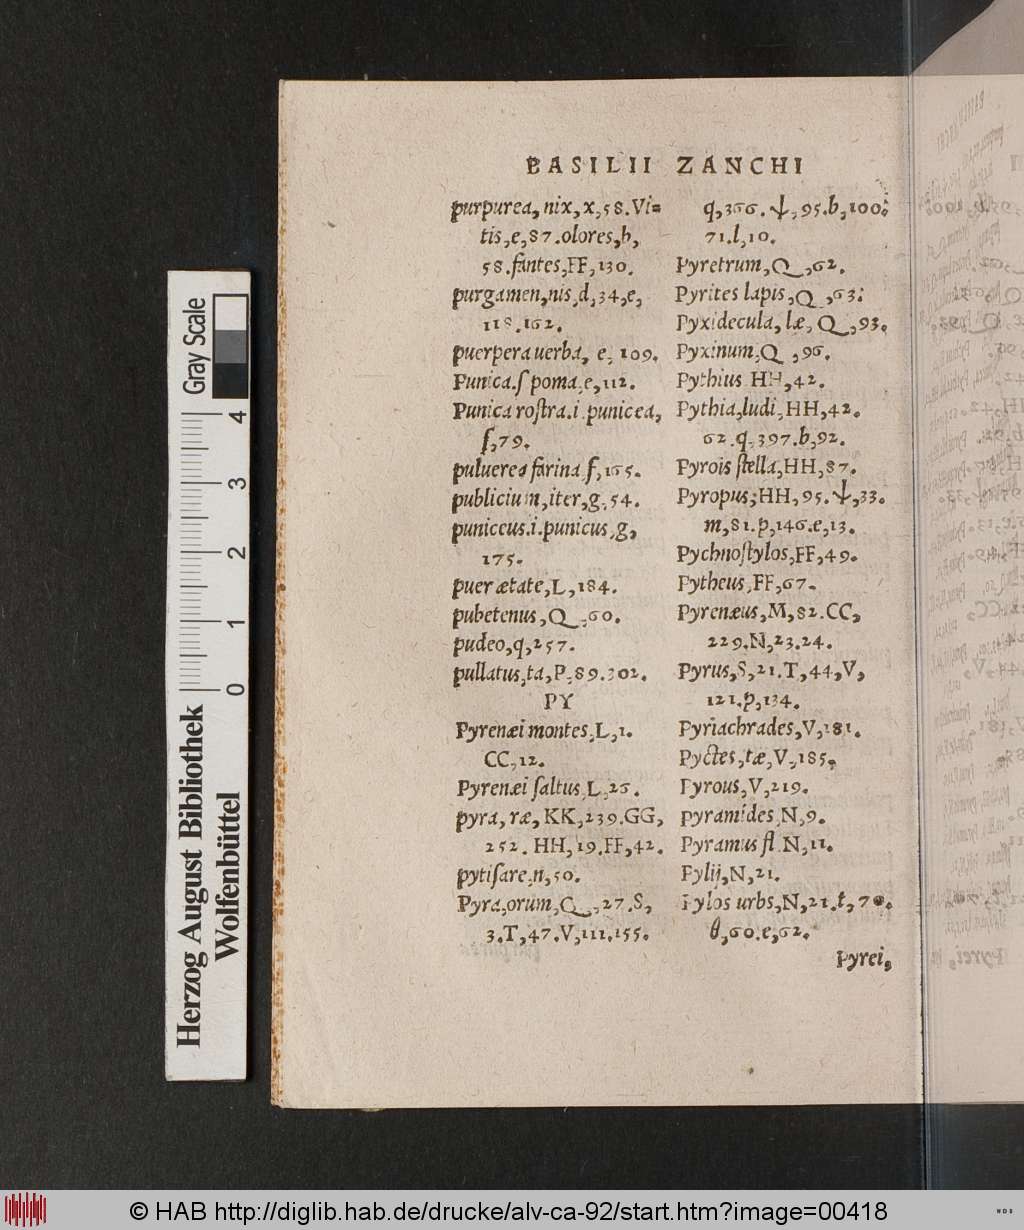 BASILII ZANCHI
purpurea, nix, x, 58. Vi=
tis, e, 87. olores, h,
58. fantes, FF, 130.
purgamen, nis, d, 34, e,
118. 162.
puerpera uerba, e, 109.
Punica. ſ poma, e, 112.
Punica roſtra. i. punicea,
ſ, 79.
puluerea farina ſ, 165.
publicium, iter, g, 54.
puniceus. i. punicus, g,
175.
puer ætate, L, 184.
pubetenus, Q, 60.
pudeo, q, 257.
pullatus, ta, P, 89. 302.
PY
Pyrenæi montes, L, 1.
CC, 12.
Pyrenæi ſaltus, L, 26.
pyra, ræ, KK, 239. GG,
252. HH, 19. FF, 42.
pytiſare, n, 50.
Pyra, orum, Q, 27. S,
3. T, 47. V, 111. 155.
q, 366. ψ, 95. b, 100.
71. l, 10.
Pyretrum, Q, 62.
Pyrites lapis, Q, 63.
Pyxidecula, læ, Q, 93.
Pyxinum, Q, 96.
Pythius HH, 42.
Pythia, ludi, HH, 42.
62. q, 397. b, 92.
Pyrois ſtella, HH, 87.
Pyropus, HH, 95. ψ, 33.
m, 81. p, 146. e, 13.
Pychnoſtylos, FF, 49.
Pytheus, FF, 67.
Pyrenæus, M, 82. CC,
229. N, 23. 24.
Pyrus, S, 21. T, 44, V,
121. p, 134.
Pyriachrades, V, 181.
Pyctes, tæ, V, 185,
Pyrous, V, 219.
pyramides, N, 9.
Pyramus fl. N, 11.
Pylij, N, 21.
Pylos urbs, N, 21. t, 70.
θ, 60. e, 62.
Pyrei,
Gray Scale
4
3
2
1
0
Herzog August Bibliothek
Wolfenbüttel
© HAB http://diglib.hab.de/drucke/alv-ca-92/start.htm?image=00418